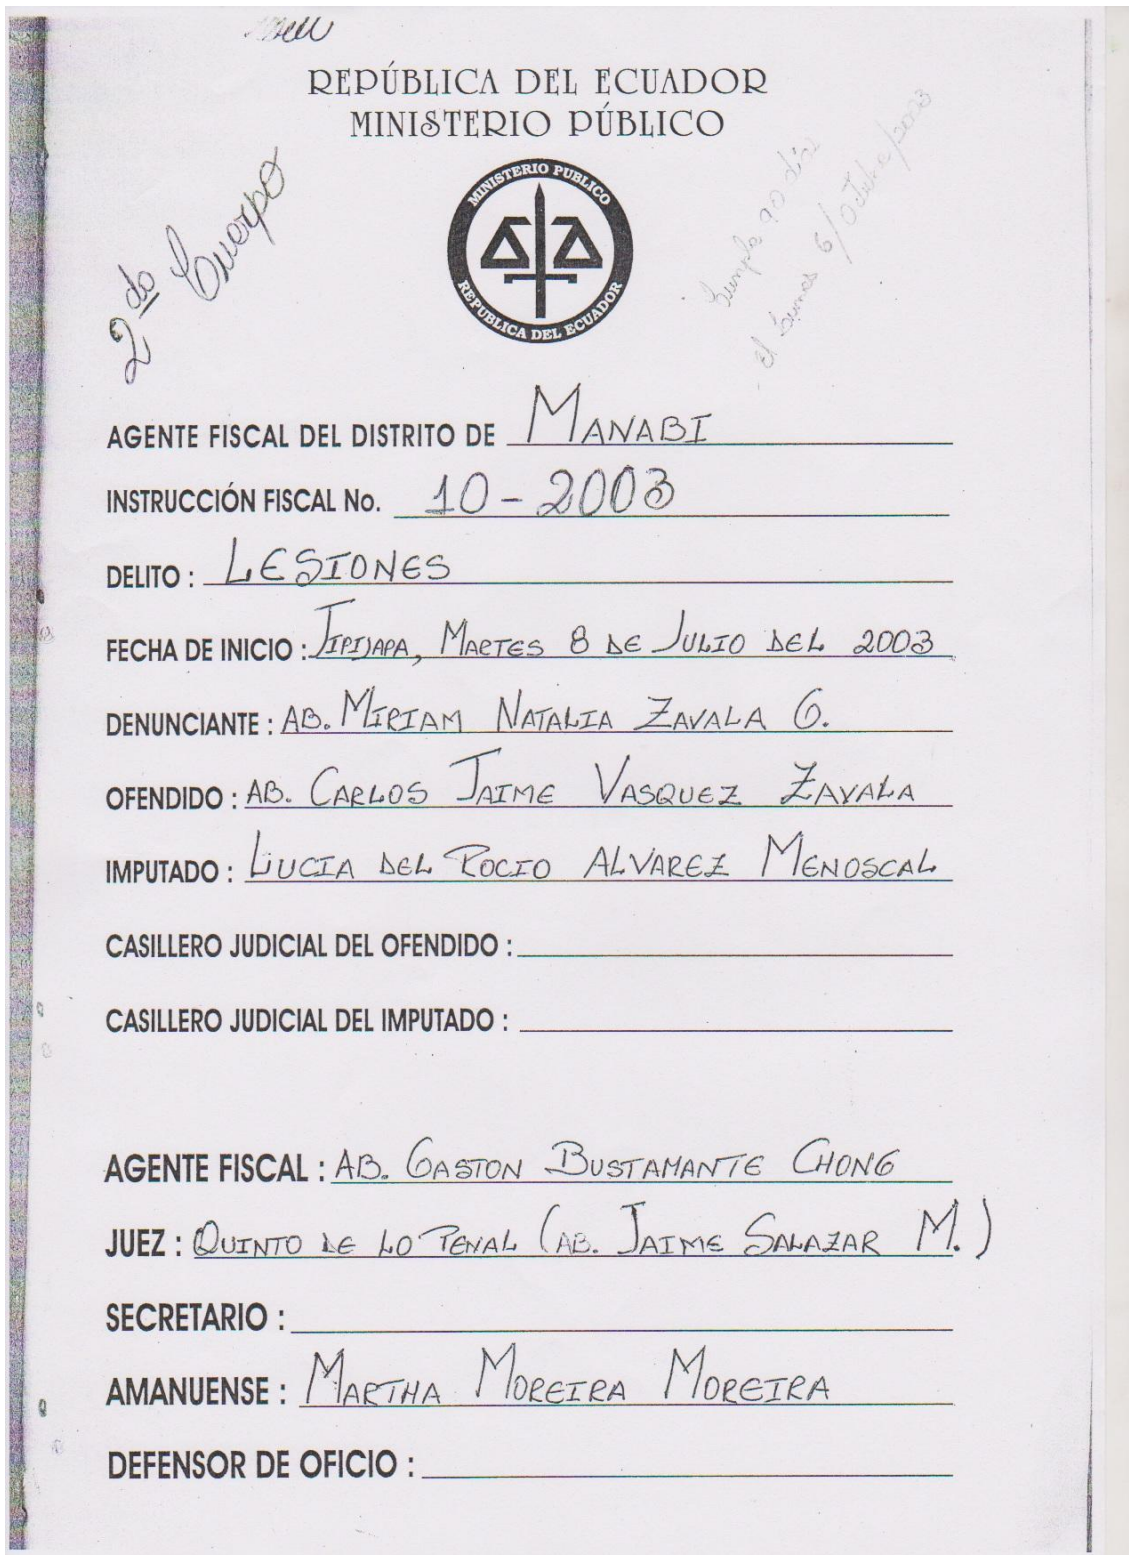 REPÚBLICA DEL ECUADOR
MINISTERIO PÚBLICO
MINISTERIO PUBLICO
REPUBLICA DEL ECUADOR
2do Cuerpo
Cumple 90 días
el Lunes 6/Octubre/2003
AGENTE FISCAL DEL DISTRITO DE MANABI
INSTRUCCIÓN FISCAL No. 10-2003
DELITO : LESIONES
FECHA DE INICIO : JIPIJAPA, MARTES 8 DE JULIO DEL 2003
DENUNCIANTE : AB. MIRIAM NATALIA ZAVALA G.
OFENDIDO : AB. CARLOS JAIME VASQUEZ ZAVALA
IMPUTADO : LUCIA DEL ROCIO ALVAREZ MENOSCAL
CASILLERO JUDICIAL DEL OFENDIDO :
CASILLERO JUDICIAL DEL IMPUTADO :
AGENTE FISCAL : AB. GASTON BUSTAMANTE CHONG
JUEZ : QUINTO DE LO PENAL (AB. JAIME SALAZAR M.)
SECRETARIO :
AMANUENSE : MARTHA MOREIRA MOREIRA
DEFENSOR DE OFICIO :